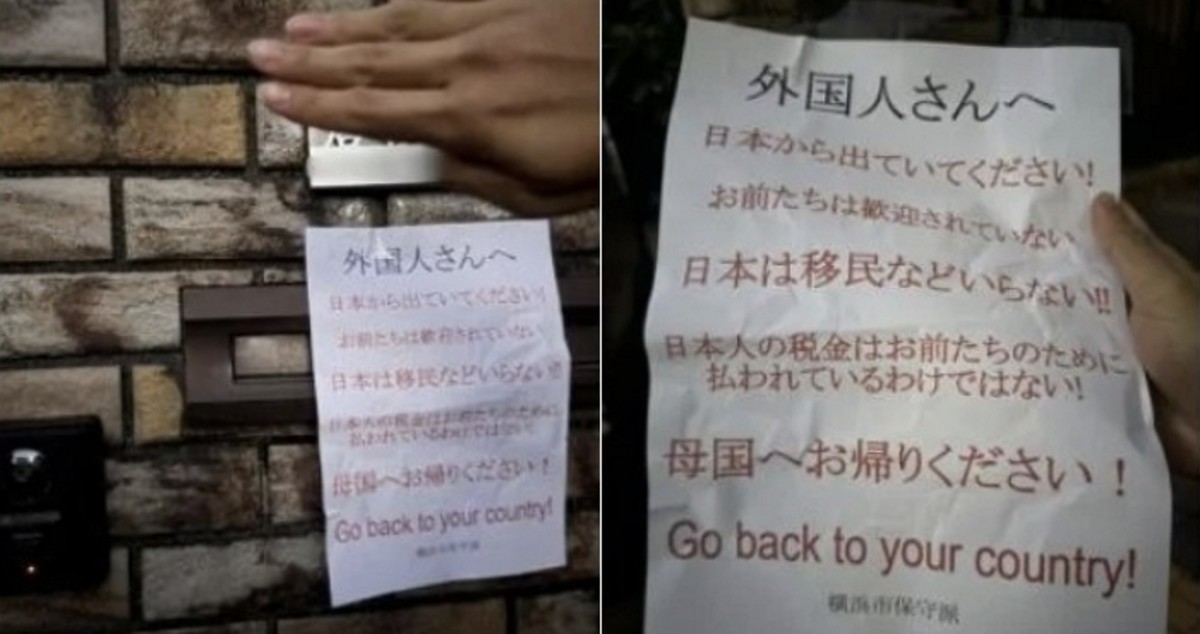 外国人さんへ
日本から出ていてください!
お前たちは歓迎されていない
日本は移民などいらない!!
日本人の税金はお前たちのために
払われているわけではない!
母国へお帰りください!
Go back to your country!
横浜市保守派
外国人さんへ
日本から出ていてください!
お前たちは歓迎されていない
日本は移民などいらない!!
日本人の税金はお前たちのために
払われているわけではない!
母国へお帰りください！
Go back to your country!
横浜市保守派